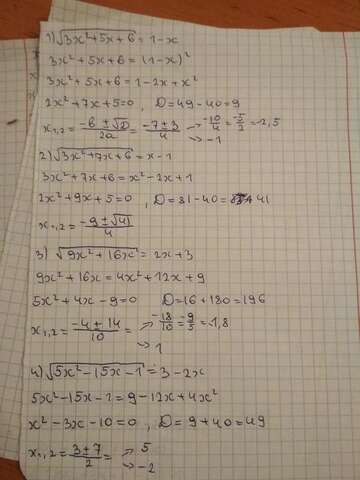 1) √3x²+5x+6 = 1-x
3x²+5x+6 = (1-x)²
3x²+5x+6 = 1-2x+x²
2x²+7x+5=0, D=49-40=9
x₁,₂ = (-б ± √D)/2a = (-7±3)/4 → -10/4 = -5/2 = -2,5
→ -1
2) √3x²+7x+6 = x-1
3x²+7x+6 = x²-2x+1
2x²+9x+5=0, D=81-40= 41
x₁,₂ = (-9±√41)/4
3) √9x²+16x = 2x+3
9x²+16x = 4x²+12x+9
5x²+4x-9=0 D=16+180=196
x₁,₂ = (-4±14)/10 = → -18/10 = -9/5 = -1,8
→ 1
4) √5x²-15x-1 = 3-2x
5x²-15x-1 = 9-12x+4x²
x²-3x-10=0, D=9+40=49
x₁,₂ = (3±7)/2 = → 5
→ -2